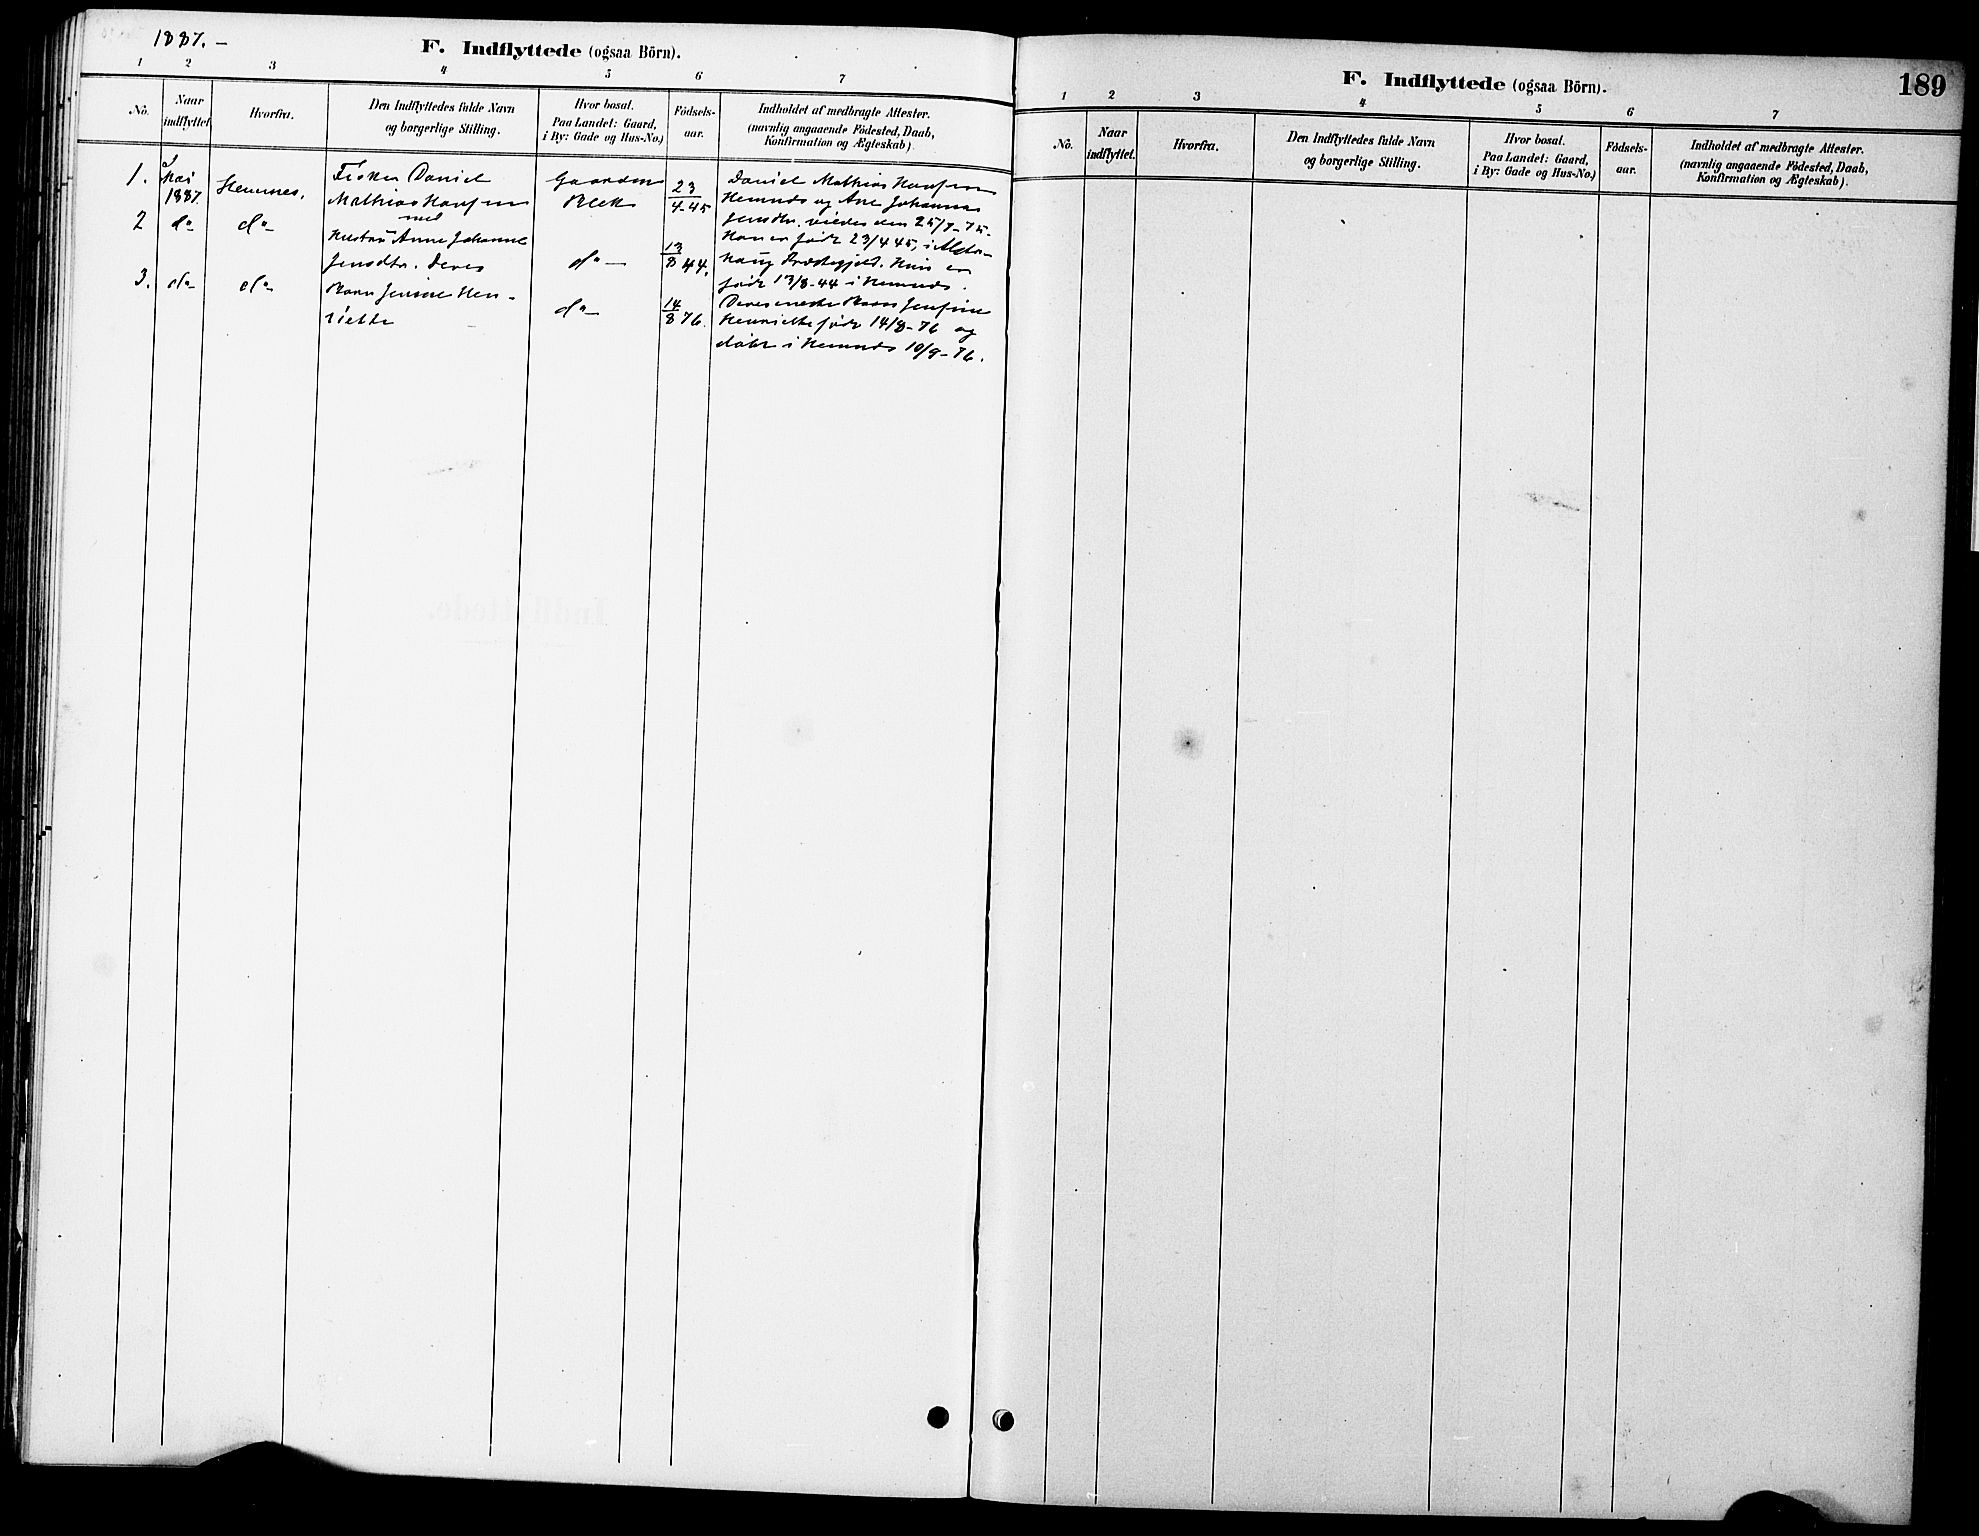 1887. –
F. Indflyttede (ogsaa Börn).
1 2 3 4 5 6 7
No.
Naar
indflyttet.
Hvorfra.
Den Indflyttedes fulde Navn
og borgerlige Stilling.
Hvor bosat.
Paa Landet: Gaard,
i By: Gade og Hus-No.)
Födsels-
aar.
Indholdet af medbragte Attester.
(navnlig angaaende Födested, Daab,
Konfirmation og Ægteskab).
1.
Mai
1887.
Hemnes.
Fisker Daniel
Mathias Hansen
med
Gaarden
23/4-45
Daniel Mathias Hansen
Hemnes og Ane Johanna
Jensdtr. viedes den 25/7-75.
Han er född 23/4 45, i Alsta-
2
do
do
Hustru Anne Johanne
Jensdtr. Deres
do —
13/8 44.
haug Præstegjeld. Hun er
född 13/8-44 i Hemnes.
3.
do
do
Barn Jensine Hen-
riette
do —
14/8 76.
Deres eneste Barn Jensine
Henriette född 14/8-76 og
döbt i Hemnes 10/9-76.
F. Indflyttede (ogsaa Börn).
189
1 2 3 4 5 6 7
No.
Naar
indflyttet.
Hvorfra.
Den Indflyttedes fulde Navn
og borgerlige Stilling.
Hvor bosat.
Paa Landet: Gaard,
i By: Gade og Hus-No.)
Födsels-
aar.
Indholdet af medbragte Attester.
(navnlig angaaende Födested, Daab,
Konfirmation og Ægteskab).